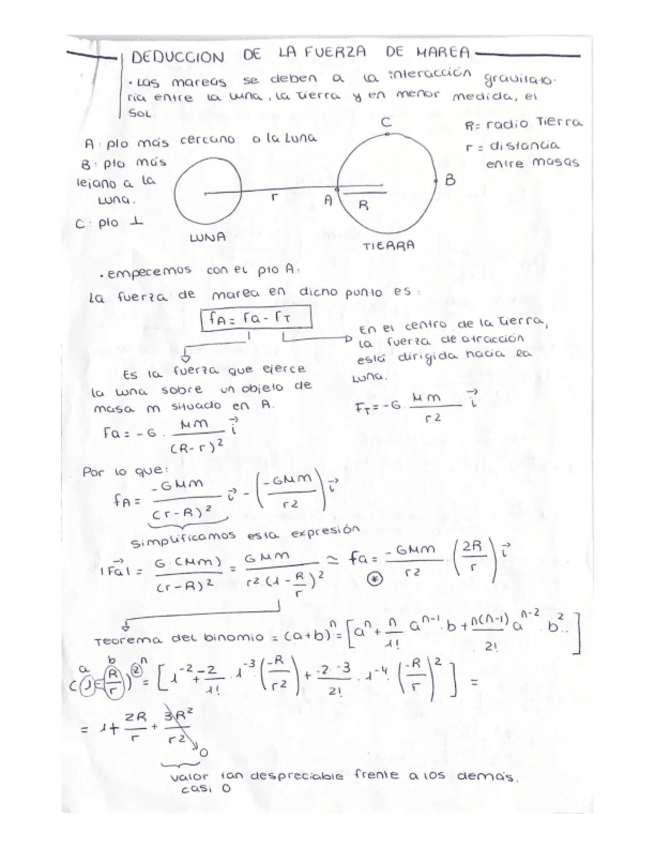 DEDUCCION DE LA FUERZA DE MAREA
• Las mareas se deben a la interacción gravitato-
ria entre la luna, la tierra y en menor medida, el
SOL
A: pto más cercano a la Luna
B: pto más
lejano a la
Luna.
C: pto ⊥
R= radio Tierra
r = distancia
entre masas
C
B
A
R
r
LUNA
TIERRA
• empecemos con el pto A:
La fuerza de marea en dicho punto es:
fA = Fa - FT
Es la fuerza que ejerce
la luna sobre un objeto de
masa m situado en A.
Fa = -G · Mm/(R-r)² i⃗
En el centro de la tierra,
la fuerza de atracción
está dirigida hacia la
Luna.
FT = -G · Mm/r² i⃗
Por lo que:
fA = -GMm/(r-R)² i⃗ - (-GMm/r²) i⃗
simplificamos esta expresión
|F⃗a| = G·(Mm)/(r-R)² = GMm/r²(1-R/r)² ≃ fa = -GMm/r² · (2R/r) i⃗
Teorema del binomio = (a+b)ⁿ = [aⁿ + n/1! aⁿ⁻¹·b + n(n-1)/2! aⁿ⁻² b²..]
a b n
(1-R/r)² = [1⁻² + -2/1! · 1⁻³ (-R/r²) + -2·-3/2! · 1⁻⁴ · (-R/r)²] =
= 1 + 2R/r + 3R²/r² 0
valor tan despreciable frente a los demás.
casi 0